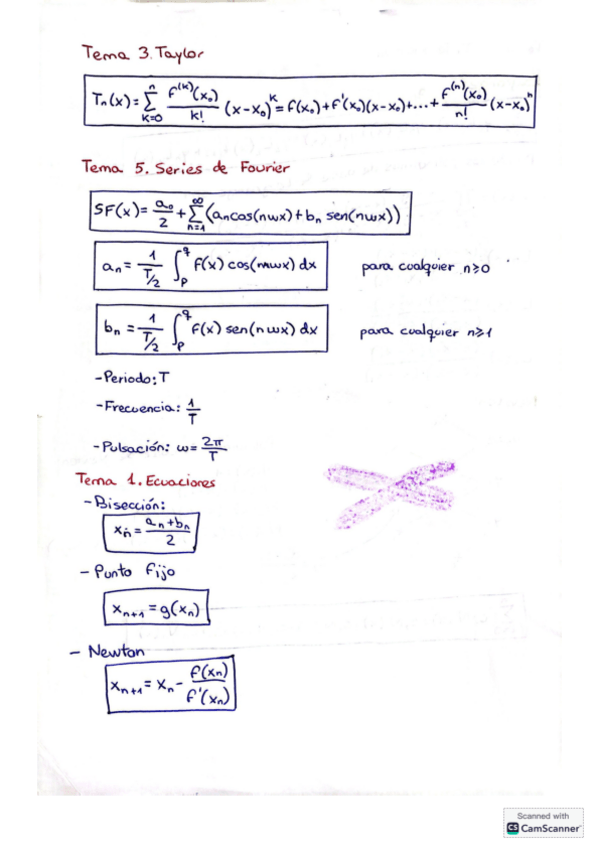 Tema 3. Taylor
Tn(x) = ∑_{k=0}^{n} f^(k)(x₀)/k! (x-x₀)^k = f(x₀) + f'(x₀)(x-x₀) + ... + f^(n)(x₀)/n! (x-x₀)^n
Tema 5. Series de Fourier
SF(x) = a₀/2 + ∑_{n=1}^{∞} (an cos(nωx) + bn sen(nωx))
an = 1/(T/2) ∫_p^q f(x) cos(nωx) dx para cualquier n≥0
bn = 1/(T/2) ∫_p^q f(x) sen(nωx) dx para cualquier n≥1
- Periodo: T
- Frecuencia: 1/T
- Pulsación: ω = 2π/T
Tema 1. Ecuaciones
- Bisección:
xn = (an + bn)/2
- Punto fijo
x_{n+1} = g(xn)
- Newton
x_{n+1} = xn - f(xn)/f'(xn)
Scanned with
CS CamScanner